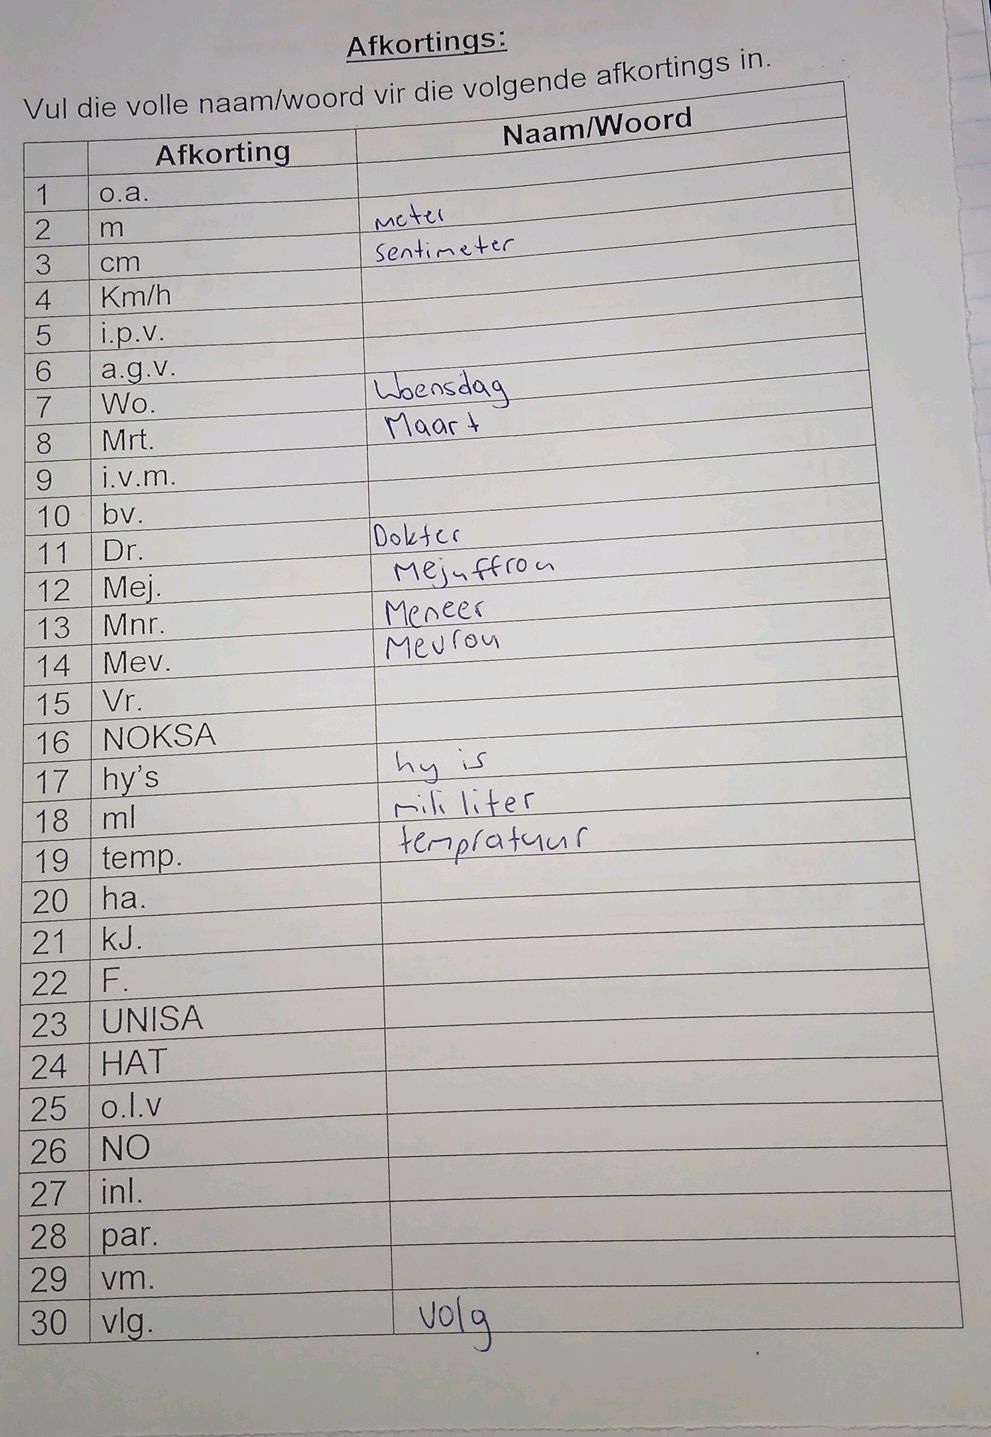 Afkortings:
Vul die volle naam/woord vir die volgende afkortings in.
Afkorting Naam/Woord
1 o.a.
2 m meter
3 cm sentimeter
4 Km/h
5 i.p.v.
6 a.g.v.
7 Wo. Woensdag
8 Mrt. Maart
9 i.v.m.
10 bv.
11 Dr. Dokter
12 Mej. Mejuffrou
13 Mnr. Meneer
14 Mev. Mevrou
15 Vr.
16 NOKSA
17 hy's hy is
18 ml mili liter
19 temp. tempratuur
20 ha.
21 kJ.
22 F.
23 UNISA
24 HAT
25 o.l.v
26 NO
27 inl.
28 par.
29 vm.
30 vlg. volg